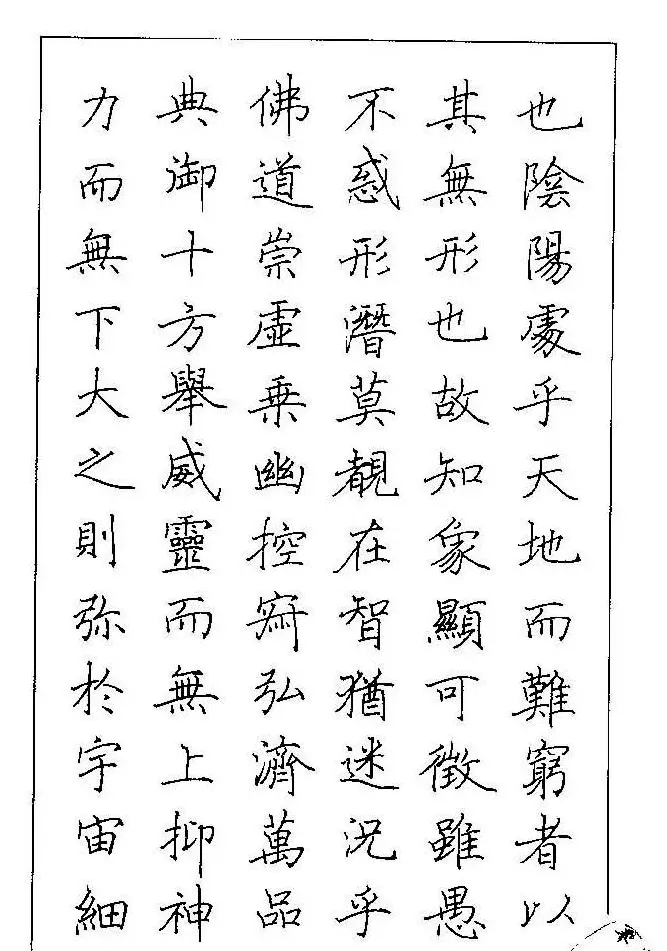 也陰陽處乎天地而難窮者以
其無形也故知象顯可徵雖愚
不惑形潛莫覩在智猶迷況乎
佛道崇虛乗幽控寂弘濟萬品
典御十方舉威靈而無上抑神
力而無下大之則弥於宇宙細